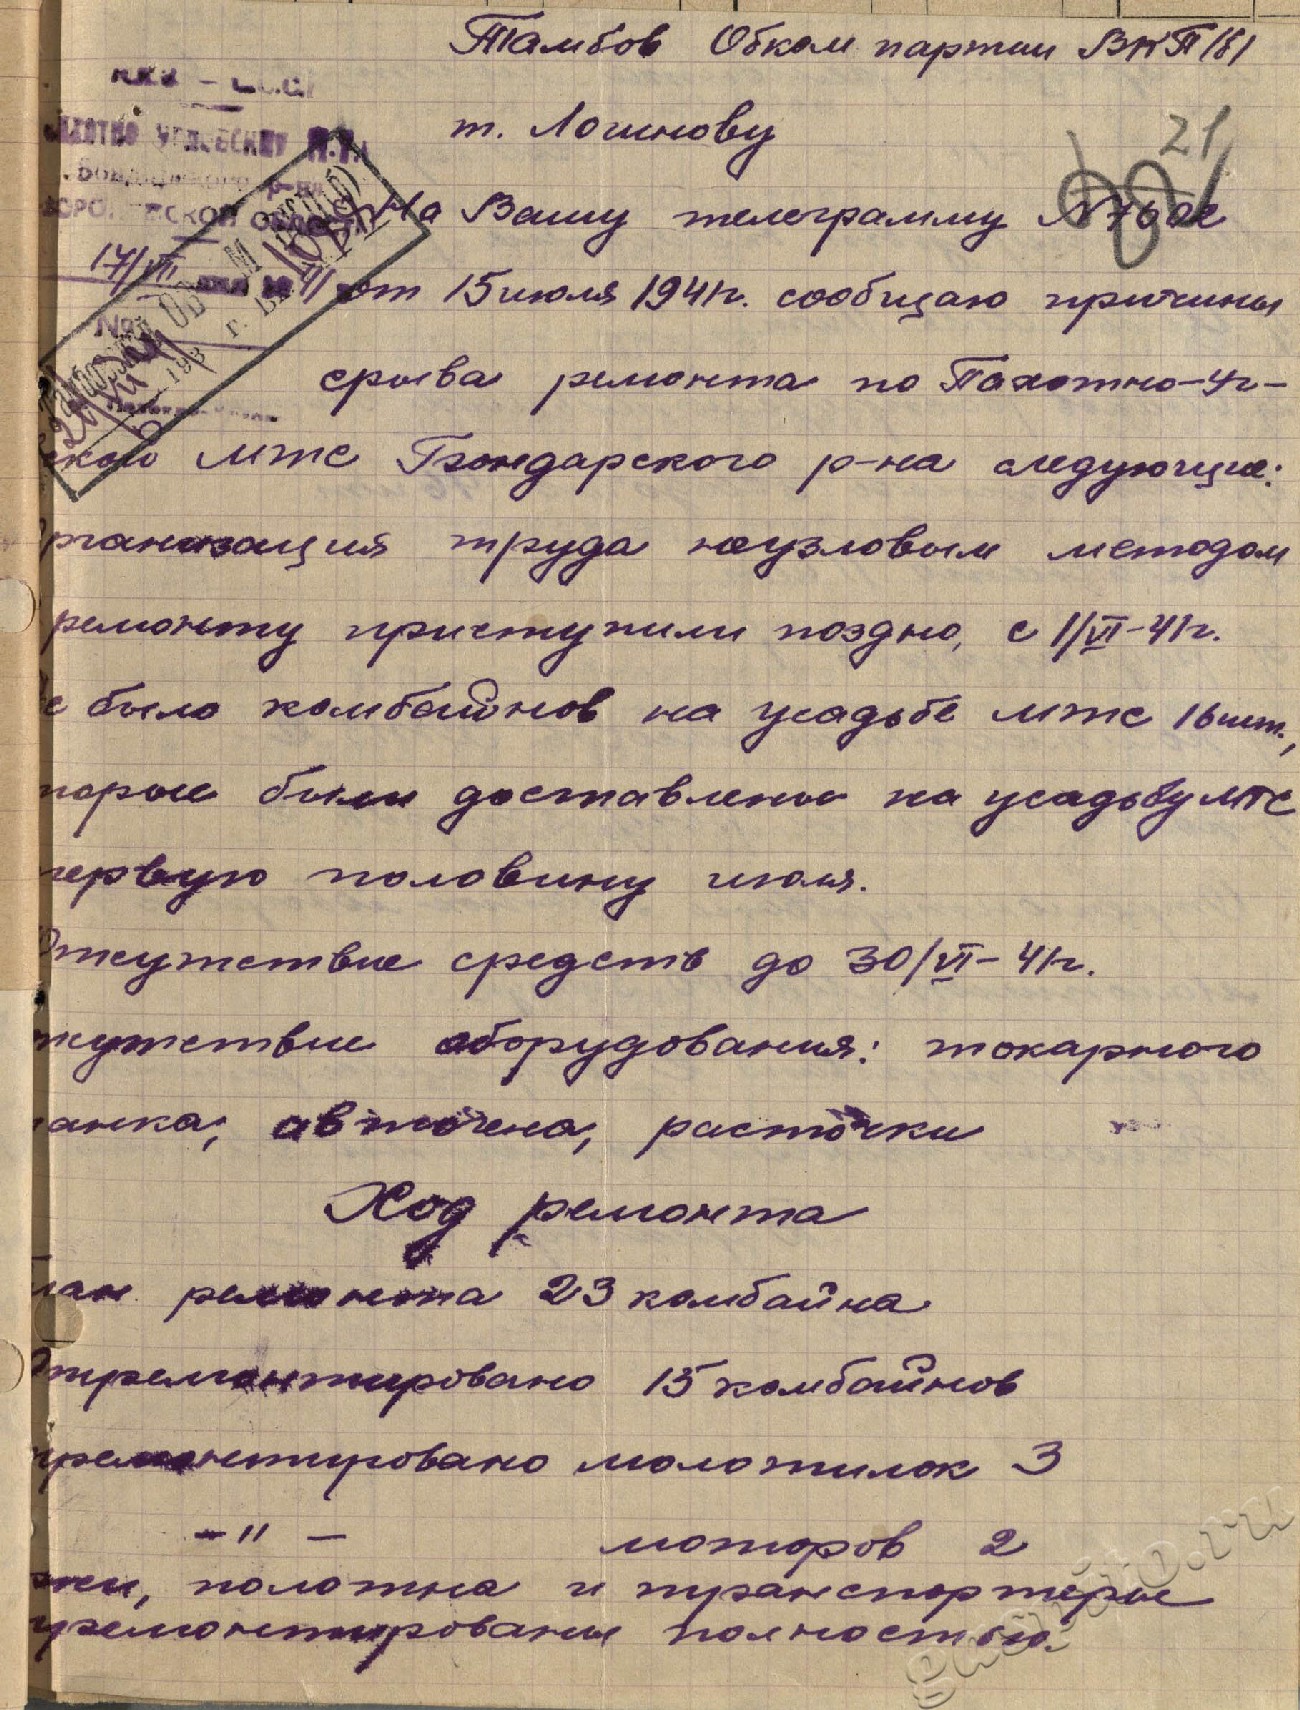 Тамбов Обком партии ВКП/б/
т. Логинову
21
На Вашу телеграмму №
17/VII
от 15 июля 1941г. сообщаю причины
срыва ремонта по Пахотно-Уг-
ской МТС Бондарского р-на следующие:
рганизация труда неузловым методом
ремонту приступили поздно, с 1/VI-41г.
е было комбайнов на усадьбе МТС 16 шт.,
торые были доставлены на усадьбу МТС
первую половину июля.
Отсутствие средств до 30/VI-41г.
тсутствие оборудования: токарного
танка, автогена, расточки
Ход ремонта
лан ремонта 23 комбайна
Отремонтировано 15 комбайнов
тремонтировано молотилок 3
-"- моторов 2
полотна и транспортеры
тремонтированы полностью.
gaspito.ru